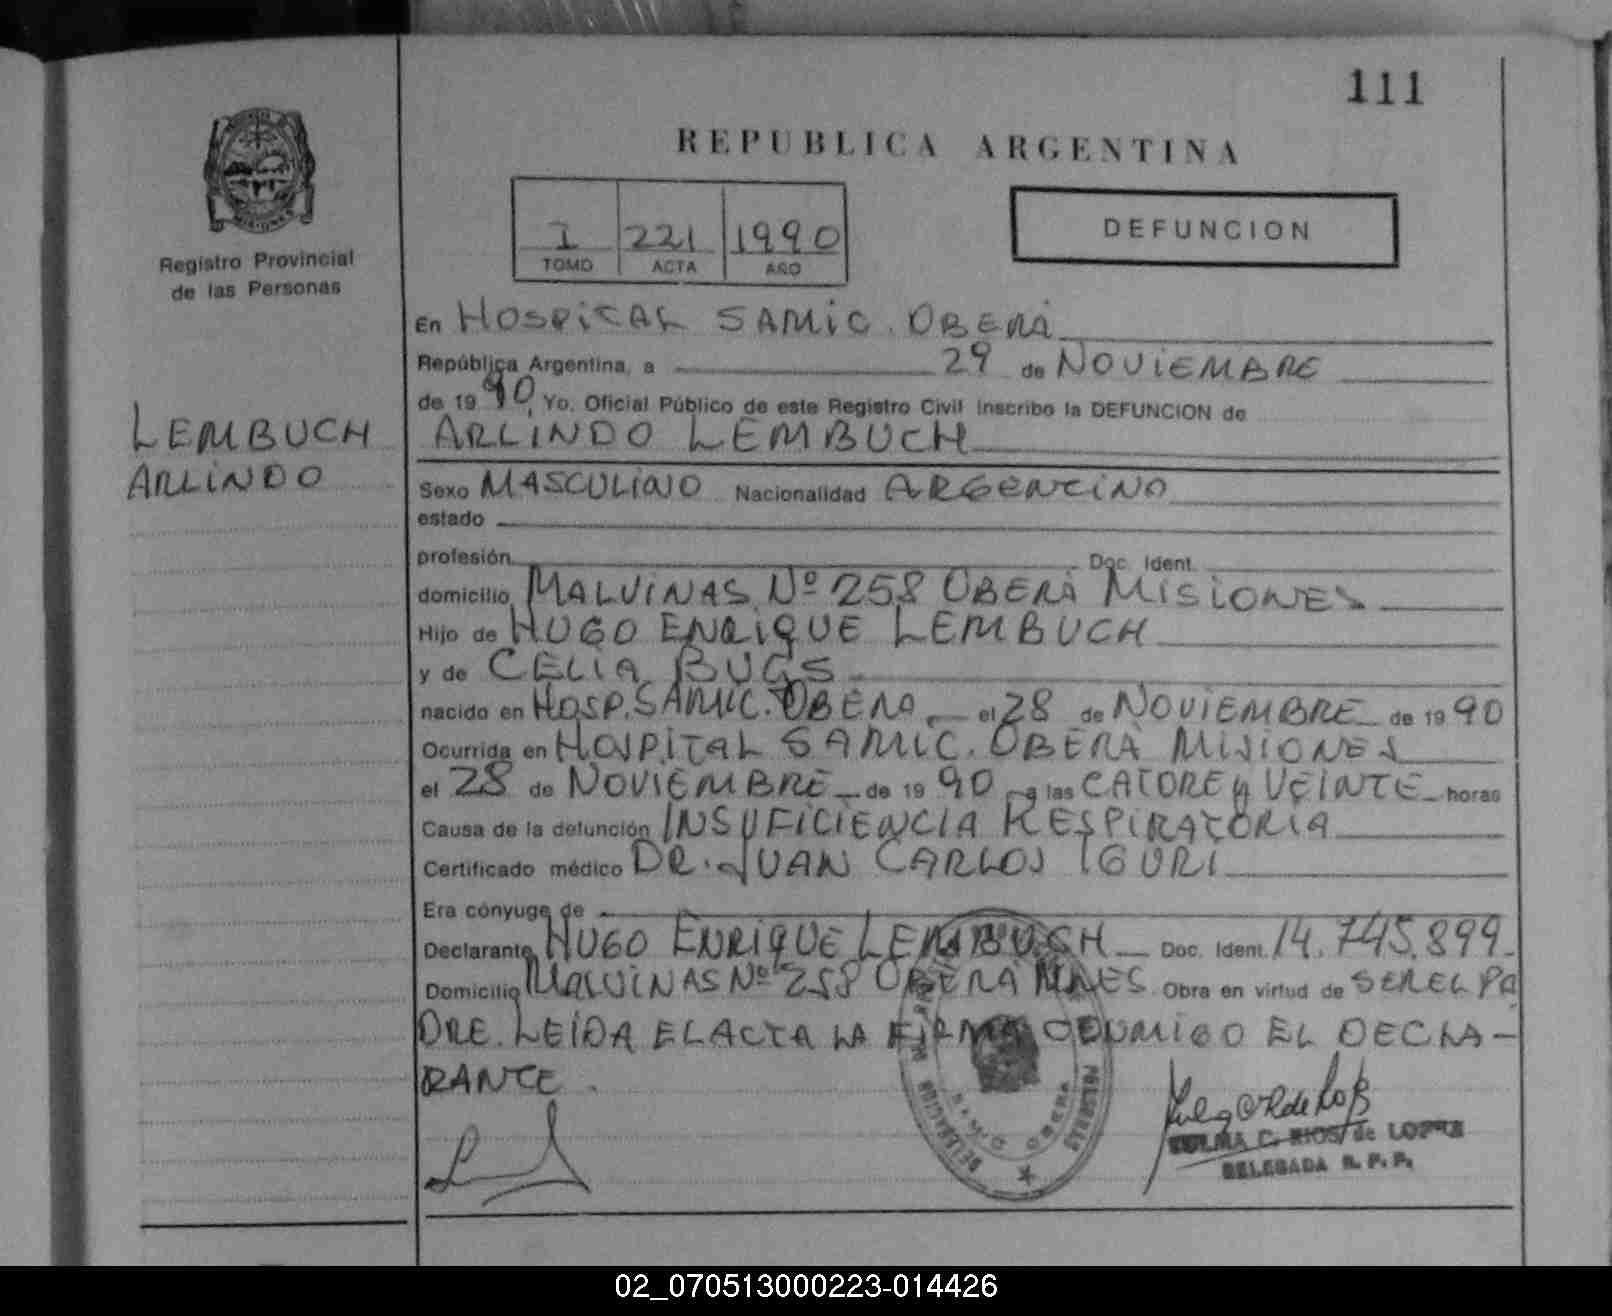 111
REPUBLICA ARGENTINA
I 221 1990
TOMO ACTA AÑO
DEFUNCION
Registro Provincial
de las Personas
LEMBUCH
ARLINDO
En HOSPITAL SAMIC. OBERA
República Argentina, a 29 de NOVIEMBRE
de 1990, Yo, Oficial Público de este Registro Civil inscribo la DEFUNCION de
ARLINDO LEMBUCH
Sexo MASCULINO Nacionalidad ARGENTINO
estado
profesión Doc. Ident.
domicilio MALVINAS Nº 258 OBERA MISIONES
Hijo de HUGO ENRIQUE LEMBUCH
y de CELIA BUGS
nacido en HOSP. SAMIC. OBERA el 28 de NOVIEMBRE de 1990
Ocurrida en HOSPITAL SAMIC. OBERA MISIONES
el 28 de NOVIEMBRE de 1990 a las CATORE y VEINTE horas
Causa de la defunción INSUFICIENCIA RESPIRATORIA
Certificado médico DR. JUAN CARLOS IGURI
Era cónyuge de
Declarante HUGO ENRIQUE LEMBUCH Doc. Ident. 14.745.899
Domicilio MALVINAS Nº 258 OBERA MNES. Obra en virtud de SER EL PA
DRE. LEIDA EL ACTA LA FIRMA CONMIGO EL DECLA-
RANTE.
ZULMA C. RIOS de LOPEZ
DELEGADA R. P. P.
02_070513000223-014426